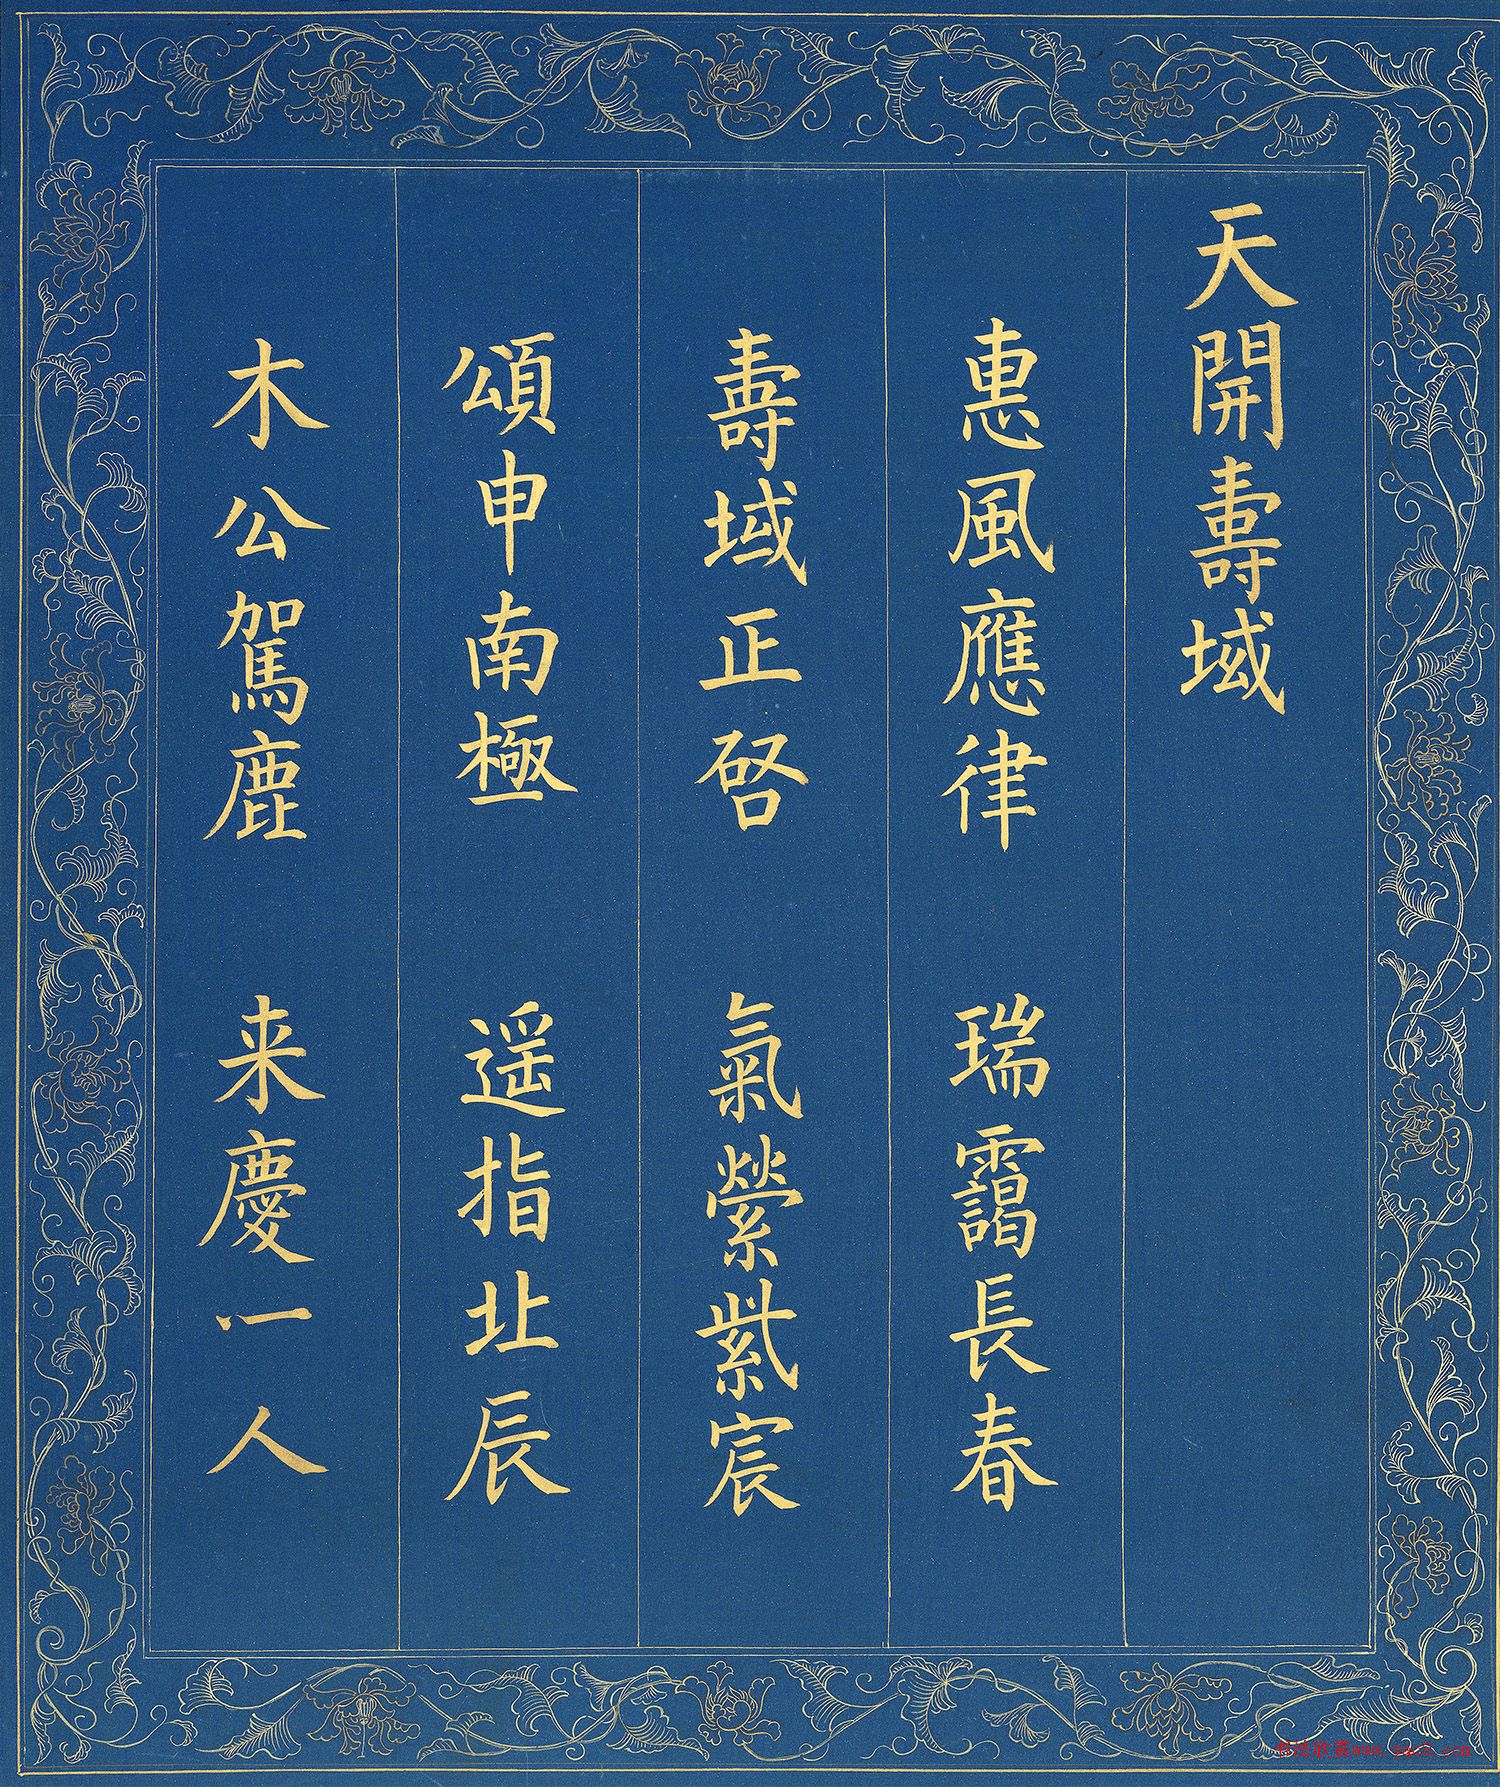 天開壽域
惠風應律 瑞靄長春
壽域正啓 氣縈紫宸
頌申南極 遥指北辰
木公駕鹿 来慶一人
书法欣赏www.yac8.com